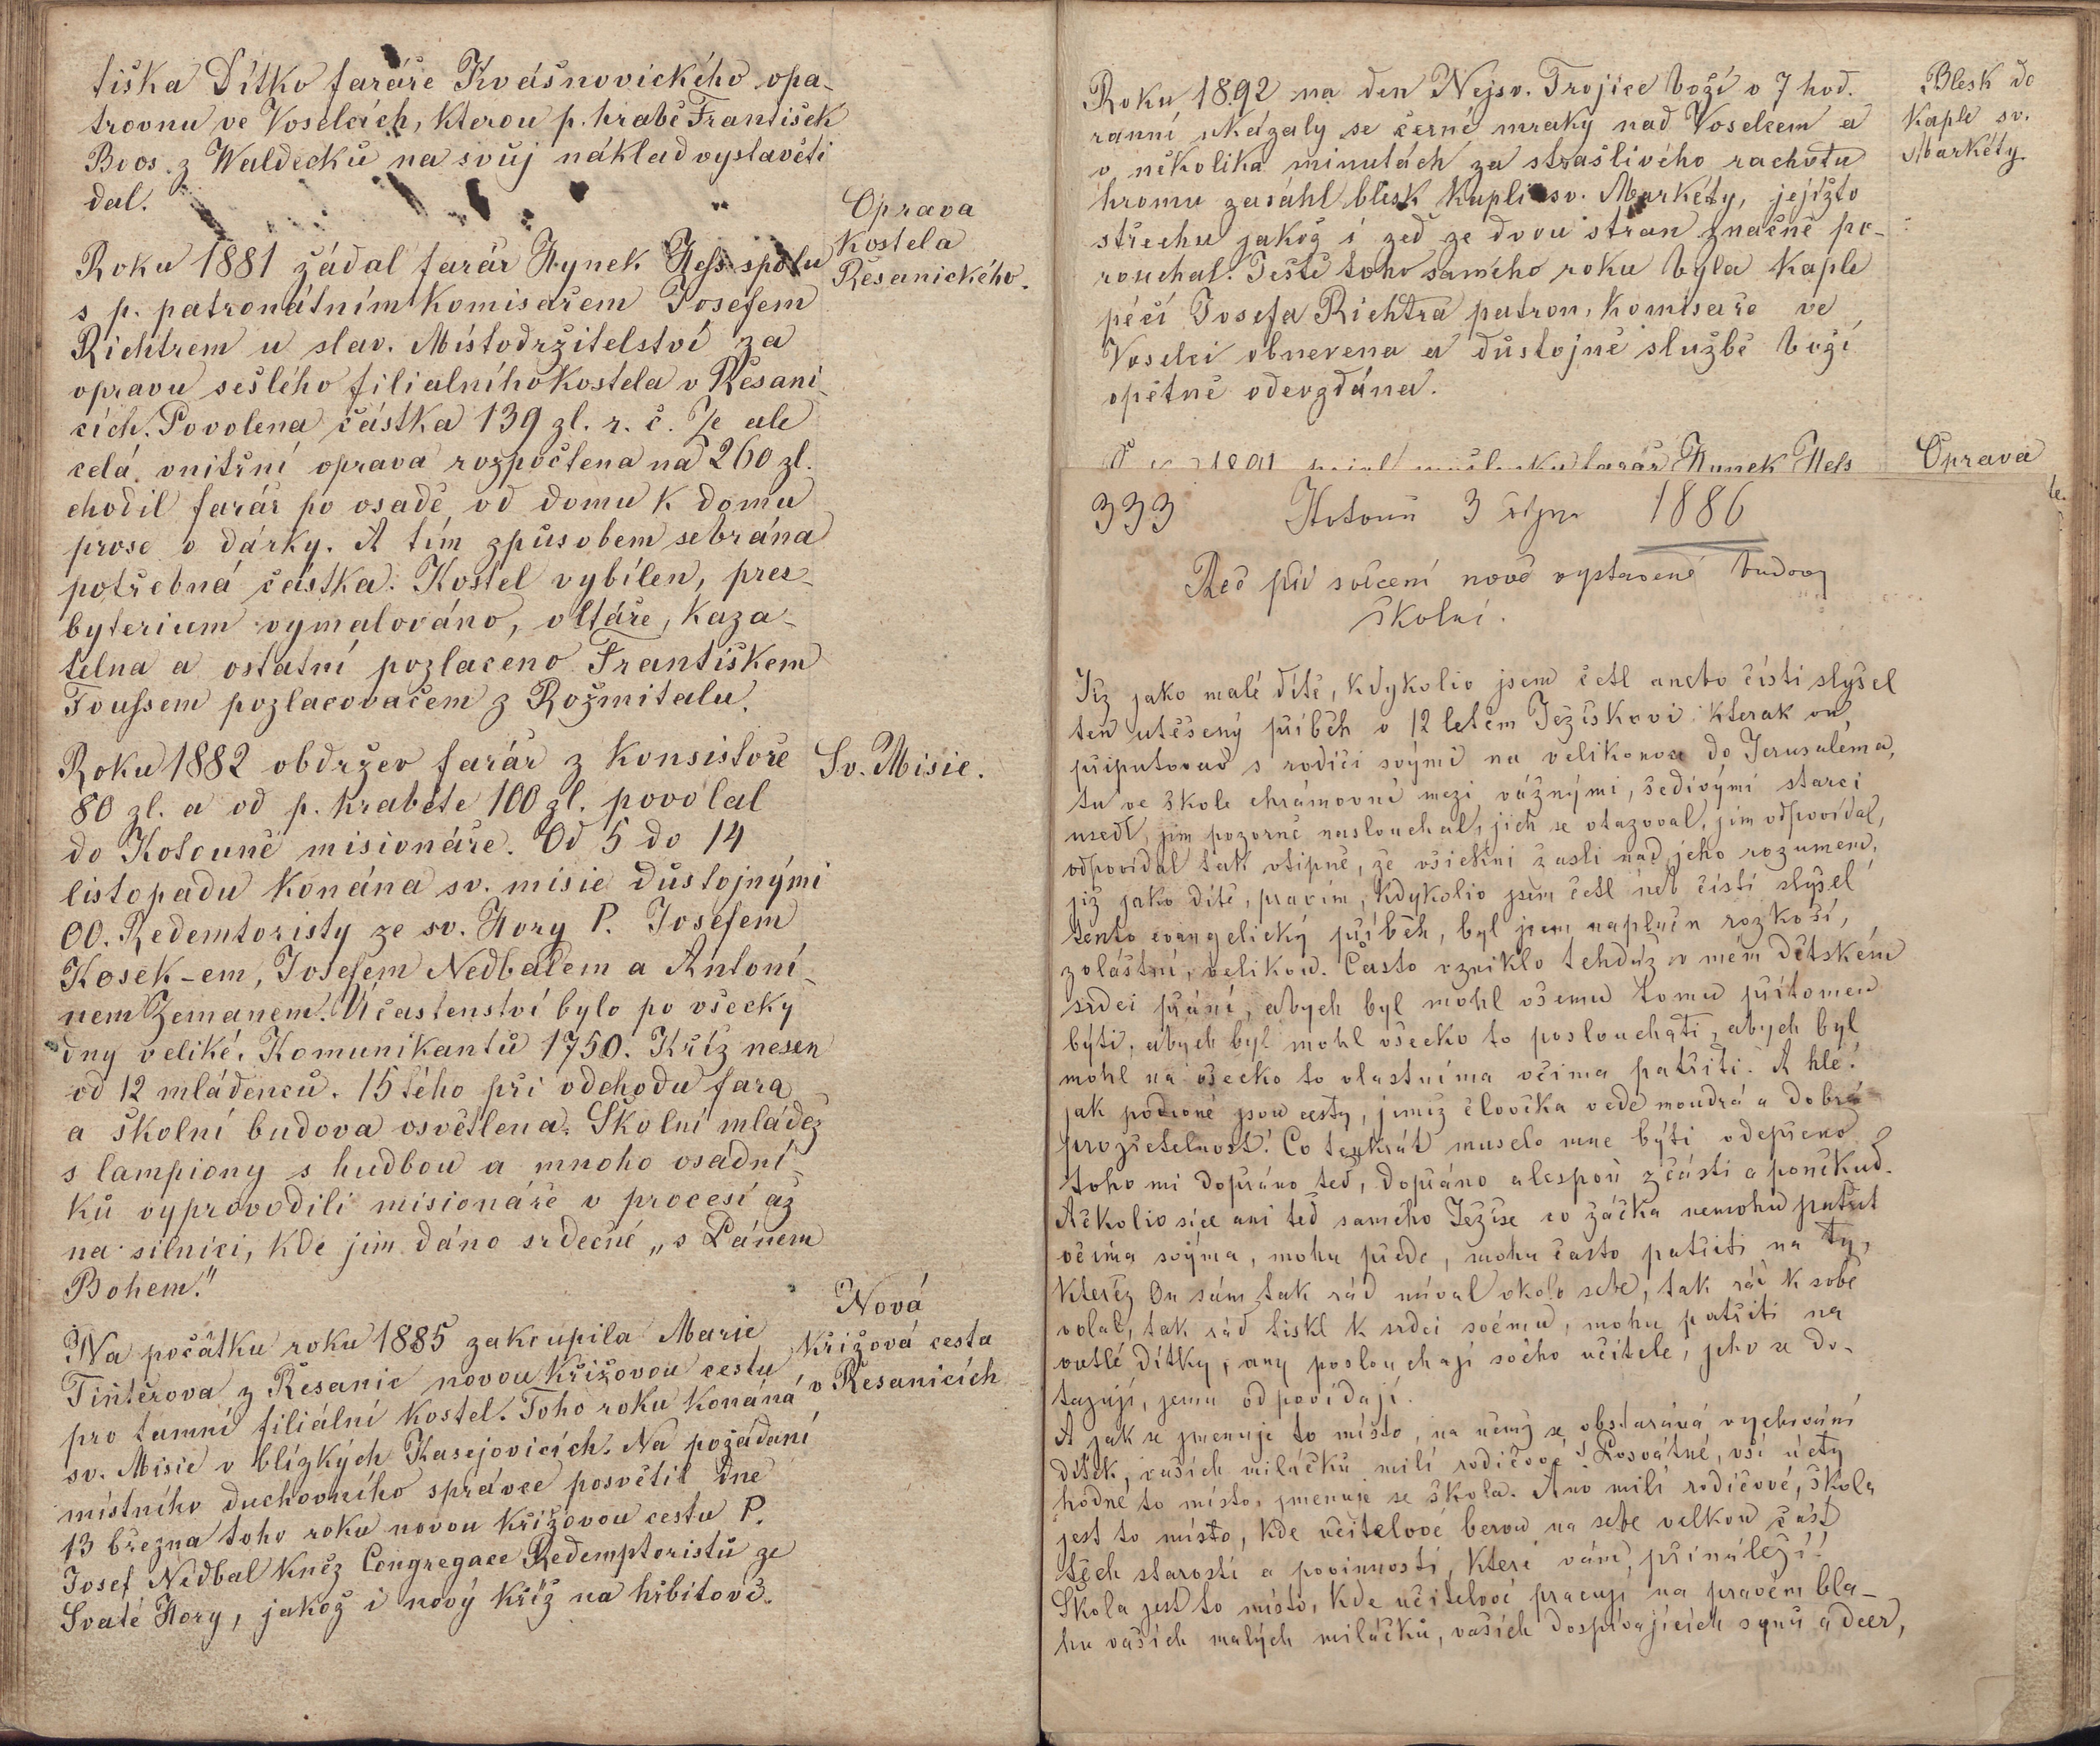 tiška Dítko faráře Kvášnovického opa-
trovnu ve Voselcích, kterou p. hrabě František
Boos z Waldecků na svůj náklad vystavěti
dal.
Oprava
Kostela
Řesanického.
Roku 1881 žádal farář Hynek Hess spolu
s p. patronátním komisařem Josefem
Richtrem u slav. Místodržitelství za
opravu sešlého filialního kostela v Řesani-
cích. Povolena částka 139 zl. r. č. Je ale
celá vnitřní oprava rozpočtena na 260 zl.
chodil farář po osadě od domu k domu
prose o dárky. A tím způsobem sebrána
potřebná částka. Kostel vybílen, pres-
byterium vymalováno, oltáře, kaza-
telna a ostatní pozlaceno Františkem
Foussem pozlacovačem z Rožmitalu.
Sv. Misie.
Roku 1882 obdržev farář z konsistoře
80 zl. a od p. hraběte 100 zl. povolal
do Kotouně misionáře. Od 5 do 14
listopadu konána sv. misie důstojnými
OO. Redemtoristy ze sv. Hory P. Josefem
Kosek-em, Josefem Nedbalem a Antoní-
nem Zemanem. Účastenství bylo po všecky
dny veliké. Komunikantů 1750. Kříž nesen
od 12 mládenců. 15tého při odchodu fara
a školní budova osvětlena. Školní mládež
s lampiony s hudbou a mnoho osadní-
ků vyprovodili misionáře v procesí až
na silnici, kde jim dáno srdečné „s Pánem
Bohem."
Nová
křížová cesta
v Řesanicích
Na počátku roku 1885 zakoupila Marie
Tintěrova z Řesanic novou křížovou cestu
pro tamní filiální kostel. Toho roku konána
sv. Misie v blízkých Kasejovicích. Na požádání
místního duchovního správce posvětil dne
13 března toho roku novou křížovou cestu P.
Josef Nedbal kněz Congregace Redemptoristů ze
Svaté Hory, jakož i nový kříž na hřbitově.
Blesk do
kaple sv.
Markéty.
Roku 1892 na den Nejsv. Trojice boží o 7 hod.
ranní ukázaly se černé mraky nad Voselcem a
v několika minutách za strašlivého rachotu
hromu zasáhl blesk kapli sv. Markéty, jejížto
střechu jakož i zeď ze dvou stran značně po-
rouchal. Ještě toho samého roku byla kaple
péčí Josefa Richtra patron. komisaře ve
Voselci obnovena a důstojné službě boží
opětně odevzdána.
Oprava
1891 farář Hynek Hess
333 Kotouň 3 října 1886
Řeč při svěcení nově vystavené budovy
školní.
Již jako malé dítě, kdykoliv jsem četl anebo čísti slyšel
ten utěšený příběh o 12 letém Ježíškovi kterak on,
připutovav s rodiči svými na velikonoce do Jerusaléma,
tu ve škole chrámovní mezi vážnými, šedivými starci
usedl, jim pozorně naslouchal, jich se otazoval, jim odpovídal,
odpovídal tak vtipně, že všickni žasli nad jeho rozumem,
již jako dítě, pravím, kdykoliv jsem četl neb čísti slyšel
tento evangelický příběh, byl jsem naplněn rozkoší,
zvláštní, velikou. Často vzniklo tehdáž v mém dětském
srdci přání, abych byl mohl všemu tomu přítomen
býti, abych byl mohl všecko to poslouchati, abych byl
mohl na všecko to vlastníma očima patřiti. A hle!
jak podivné jsou cesty, jimiž člověka vede moudrá a dobrá
prozřetelnost! Co tenkrát muselo mne býti odepřeno
toho mi dopřáno teď, dopřáno alespoň z části a poněkud.
Ačkoliv sice ani teď samého Ježíše co žáčka nemohu patřit
očima svýma, mohu přede, mohu často patřiti na ty,
kteréž On sám tak rád míval okolo sebe, tak rád k sobě
volal, tak rád tiskl k srdci svému, mohu patřiti na
outlé dítky, any poslouchají svého učitele, jeho se do-
tazují, jemu odpovídají.
A jak se jmenuje to místo, na němž se obstarává vychování
dítek, vašich miláčků milí rodičové? Posvátné, vší úcty
hodné to místo, jmenuje se škola. Ano milí rodičové, škola
jest to místo, kde učitelové berou na sebe velkou část
těch starostí a povinností, které vám přináleží!
Škola jest to místo, kde učitelové pracují na pravém bla-
hu vašich malých miláčků, vašich dospívajících synů a dcer,